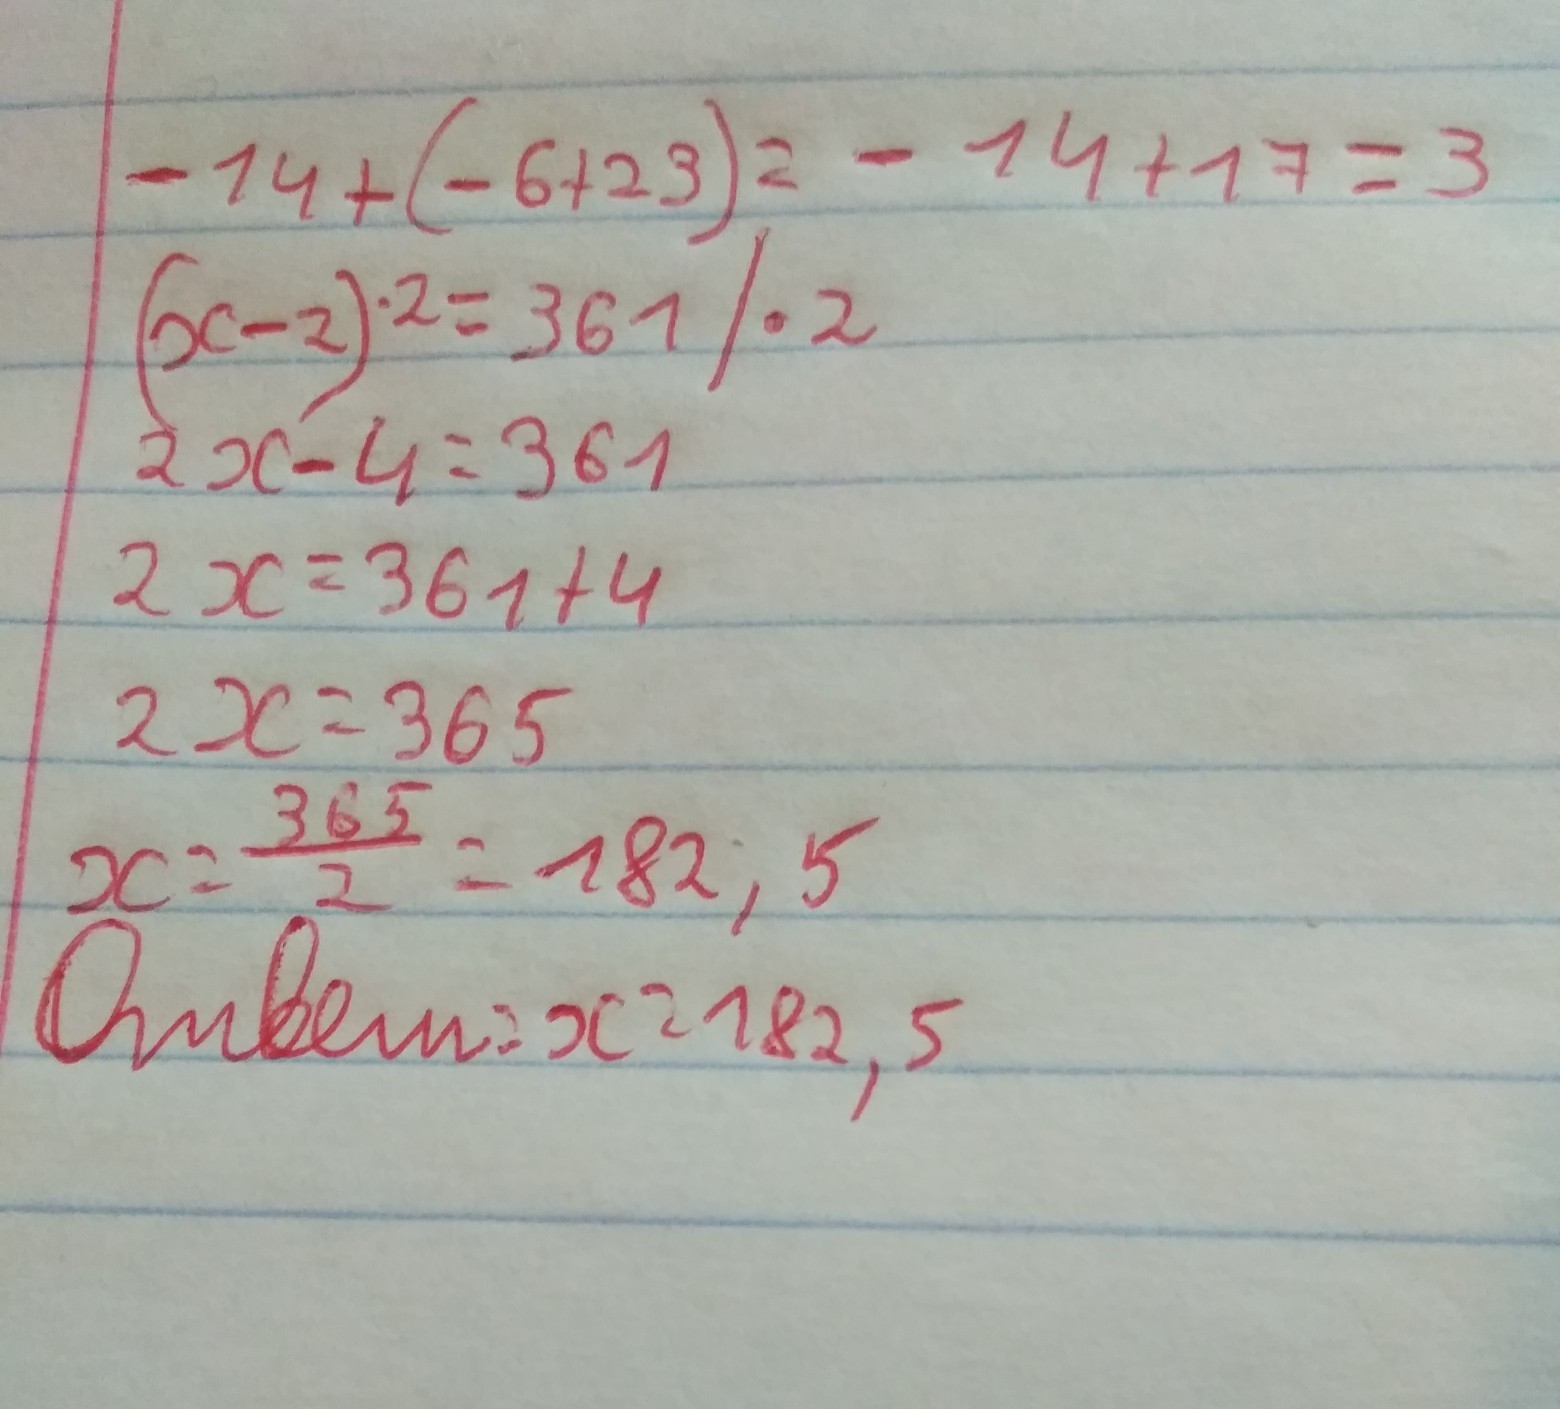 -14+(-6+23)=-14+17=3
(x-2)·2=361/·2
2x-4=361
2x=361+4
2x=365
x=365/2=182,5
Ответ: x=182,5